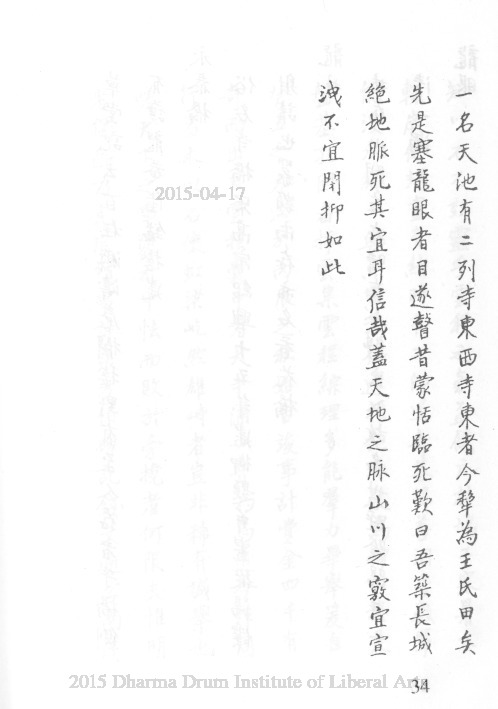 一名天池有二列寺東西寺東者今犂為王氏田矣
先是塞龍眼者目遂瞽昔蒙恬臨死歎曰吾築長城
絕地脈死其宜耳信哉蓋天地之脉山川之竅宜宣
洩不宜閉抑如此
2015-04-17
34
2015 Dharma Drum Institute of Liberal Arts